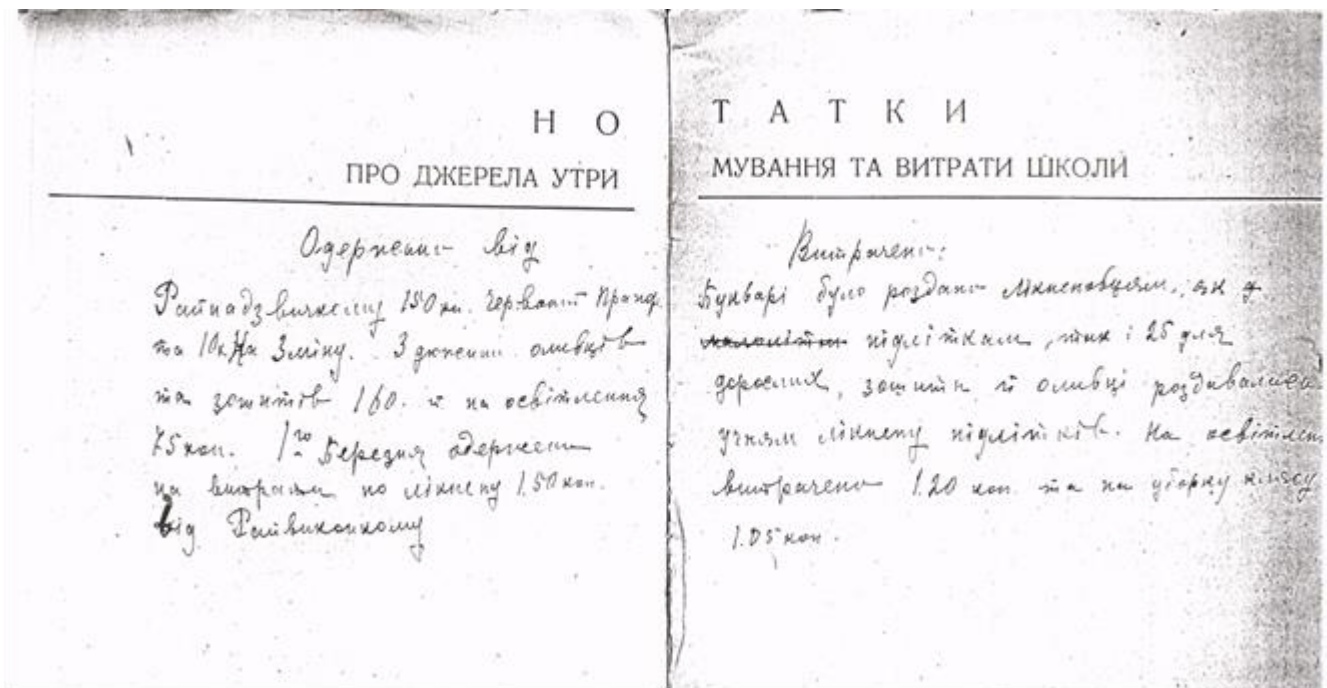 НОТАТКИ
ПРО ДЖЕРЕЛА УТРИМУВАННЯ ТА ВИТРАТИ ШКОЛИ
Одержано від
150 кн. Червоний Прапор
та 10 к. На Зміну. Здержани оливців
та зошитів 1 60. й на освітлення
75 коп. 1го Березня одержано
на витрати по лікнепу 1.50 коп.
від Райвиконкому
Витрачено:
Букварі було роздано лікнепівцям, як
підліткам, так і 25 для
дорослих, зошити й оливці роздавались
учням лікнепу підлітків. На освітлен
витрачено 1.20 коп. та на уборку класу
1.05 коп.